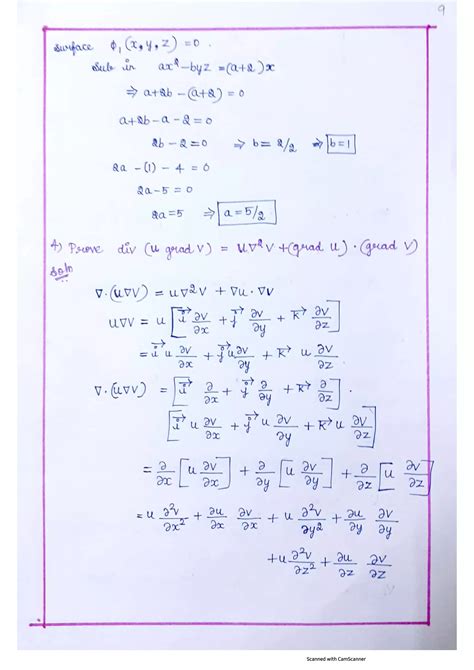 9
surface ϕ₁(x, y, z) = 0.
Sub in ax² - byz = (a+2)x
⇒ a+2b-(a+2) = 0
a+2b-a-2 = 0
2b-2 = 0 ⇒ b = 2/2 ⇒ b=1
2a-(1)-4 = 0
2a-5 = 0
2a = 5 ⇒ a = 5/2
4) Prove div (u grad v) = u∇²v + (grad u) · (grad v)
Soln
∇·(u∇v) = u∇²v + ∇u · ∇v
u∇v = u [i⃗ ∂v/∂x + j⃗ ∂v/∂y + k⃗ ∂v/∂z]
= i⃗ u ∂v/∂x + j⃗ u ∂v/∂y + k⃗ u ∂v/∂z
∇·(u∇v) = [i⃗ ∂/∂x + j⃗ ∂/∂y + k⃗ ∂/∂z] ·
[i⃗ u ∂v/∂x + j⃗ u ∂v/∂y + k⃗ u ∂v/∂z]
= ∂/∂x [u ∂v/∂x] + ∂/∂y [u ∂v/∂y] + ∂/∂z [u ∂v/∂z]
= u ∂²v/∂x² + ∂u/∂x ∂v/∂x + u ∂²v/∂y² + ∂u/∂y ∂v/∂y
+ u ∂²v/∂z² + ∂u/∂z ∂v/∂z
Scanned with CamScanner